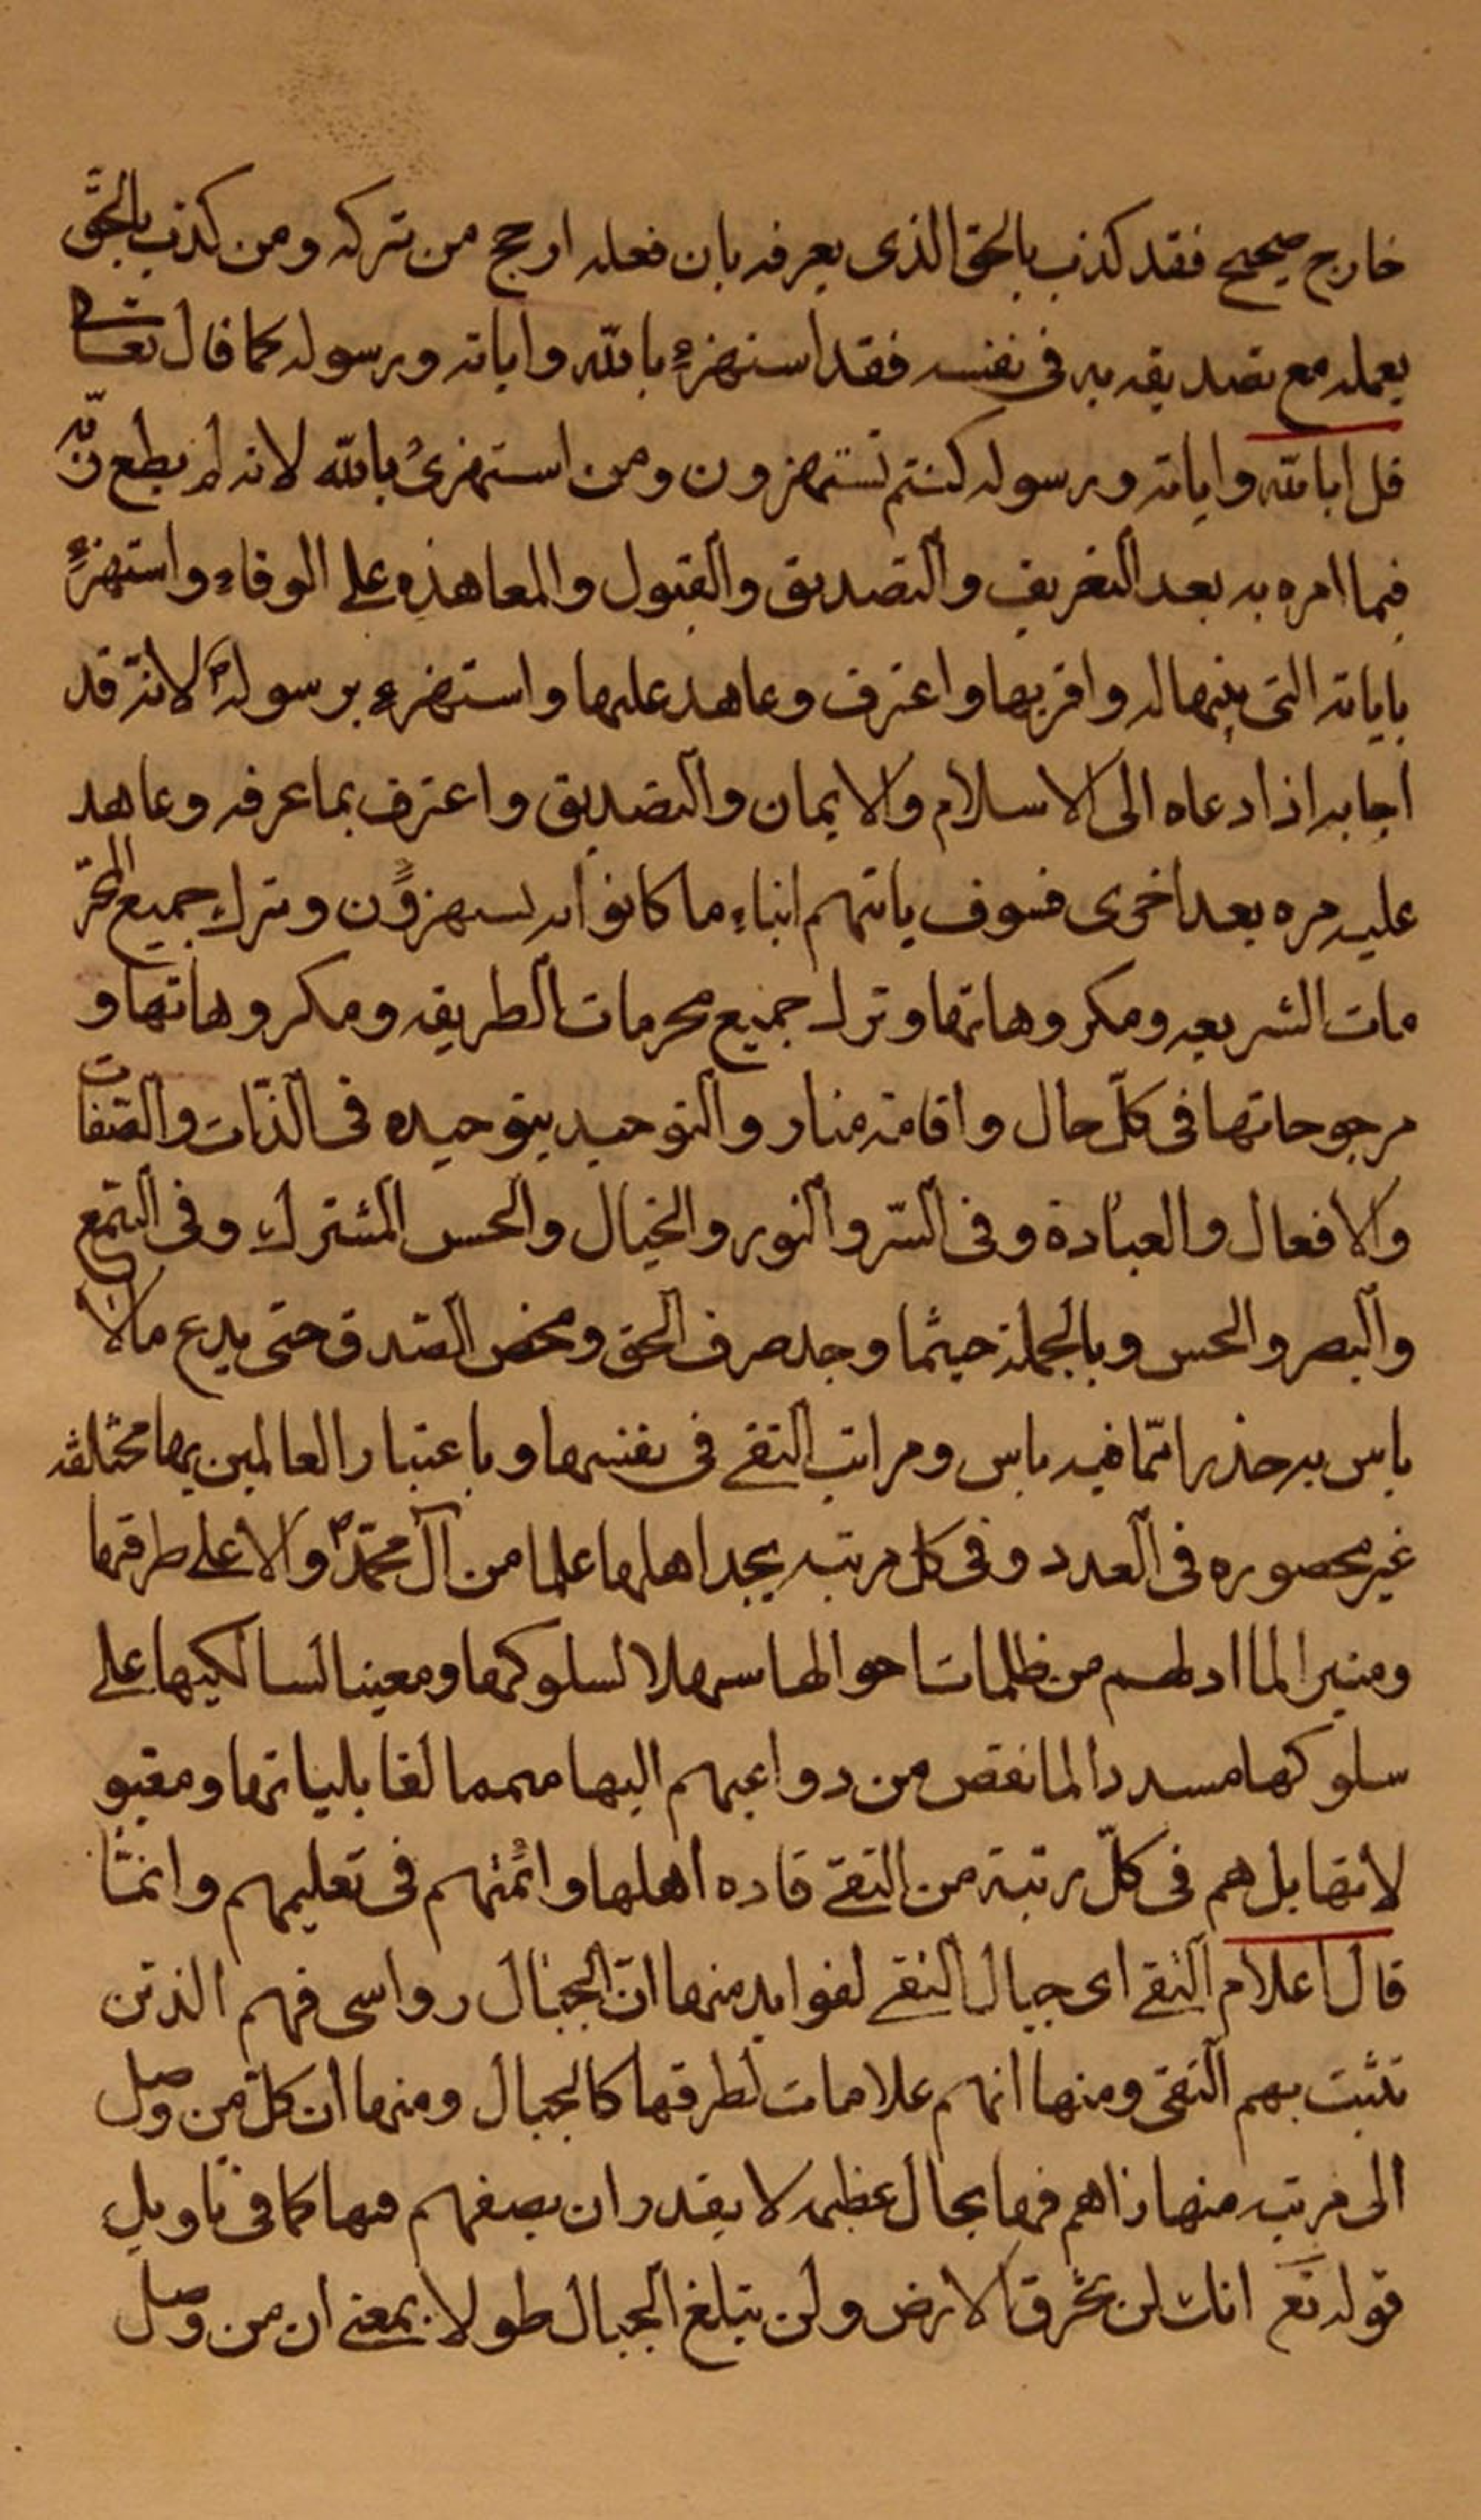 خارج صحيح فقد كذب بالحق الذى يعرفه بان فعله ارجح من تركه ومن كذب بالحّق
بعمله مع تصديقه به فى نفسه فقد استهزء بالله واياته ورسوله كما قال تعالى
قل ابالله واياته ورسوله كنتم تستهزون ومن استهزئ بالله لانه لم يطع ربّه
فيما امره به بعد التعريف والتصديق والقبول والمعاهده على الوفاء واستهزء
باياته التى بينها له واقر بها واعترف وعاهد عليها واستهزء برسوله ص لانه قد
اجابه اذا دعاه الى الاسلام والايمان والتصديق واعترف بما عرفه وعاهد
عليه مره بعد اخرى فسوف ياتيهم انباء ما كانوا به يستهزؤن وترك جميع المحرّ
مات الشريعه ومكروهاتها وترك جميع محرمات الطريقه ومكروهاتها و
مرجوحاتها فى كلّ حال واقامة منار والتوحيد بتوحيده فى الذّات والصّفات
والافعال والعبادة وفى السّر والنور والخيال والحس المشترك وفى السّمع
والبصر والحس وبالجملة حيثما وجد صرف الحق ومحض الصّدق حتى يدع ما لا
باس به حذرا ممّا فيه باس ومراتب التقى فى نفسها وباعتبار العالمين بها مختلفه
غير محصوره فى العدد وفى كل مرتبه يجد اهلها علما من آل محمّد ص والا على طرقها
ومنيرا لما ادلهم من ظلمات احوالها سهلا لسلوكها ومعينا لسالكيها على
سلوكها مسددا لما نقص من دواعيهم اليها متمما لقابلياتها ومقبو
لاتها بل هم فى كلّ رتبة من التقى قاده اهلها وائمّتهم فى تعليمهم وانمّا
قال اعلام التقى اى جبال التقى لفوايد منها انّ الجبال رواسى فهم الذين
تثبت بهم التقى ومنها انهم علامات لطرقها كالجبال ومنها ان كلّ من وصل
الى مرتبه منها راهم فيها بحال عظيمه لا يقدر ان يصفهم فيها كما فى تاويل
قوله تع انك لن تخرق الارض ولن تبلغ الجبال طولا بمعنى ان من وصل